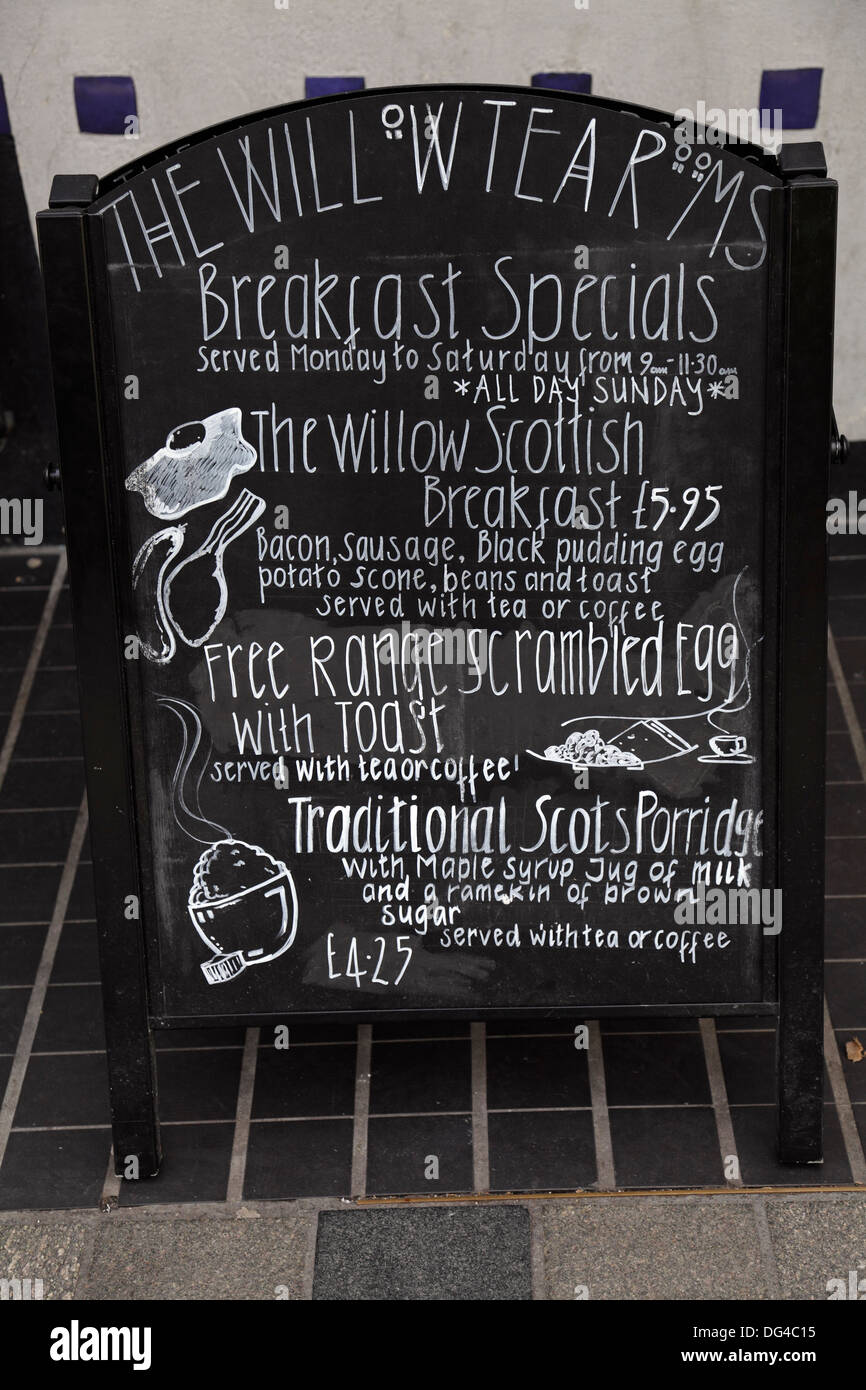 THE WILLOW TEAROOMS
Breakfast Specials
Served Monday to Saturday from 9am-11.30am
*ALL DAY SUNDAY*
The Willow Scottish
Breakfast £5.95
Bacon, Sausage, Black pudding egg
potato scone, beans and toast
served with tea or coffee
Free Range Scrambled Egg
with Toast
served with tea or coffee
Traditional Scots Porridge
with Maple syrup Jug of milk
and a ramekin of brown
sugar
served with tea or coffee
£4.25
alamy
Image ID: DG4C15
www.alamy.com